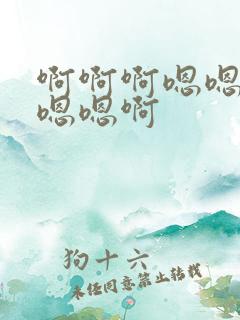 啊啊啊嗯嗯
嗯嗯啊
狗十六
未经同意禁止转载